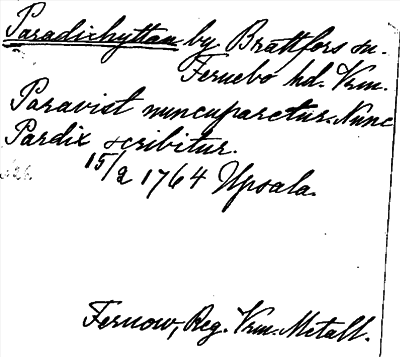 Paradichyttan by Brattfors sn.
Fernebo hd. Vrm.
Paravist nuncuparetur. Nunc
Pardix scribitur.
15/2 1764 Upsala.
Fernow, Reg. Vrm. Metall.